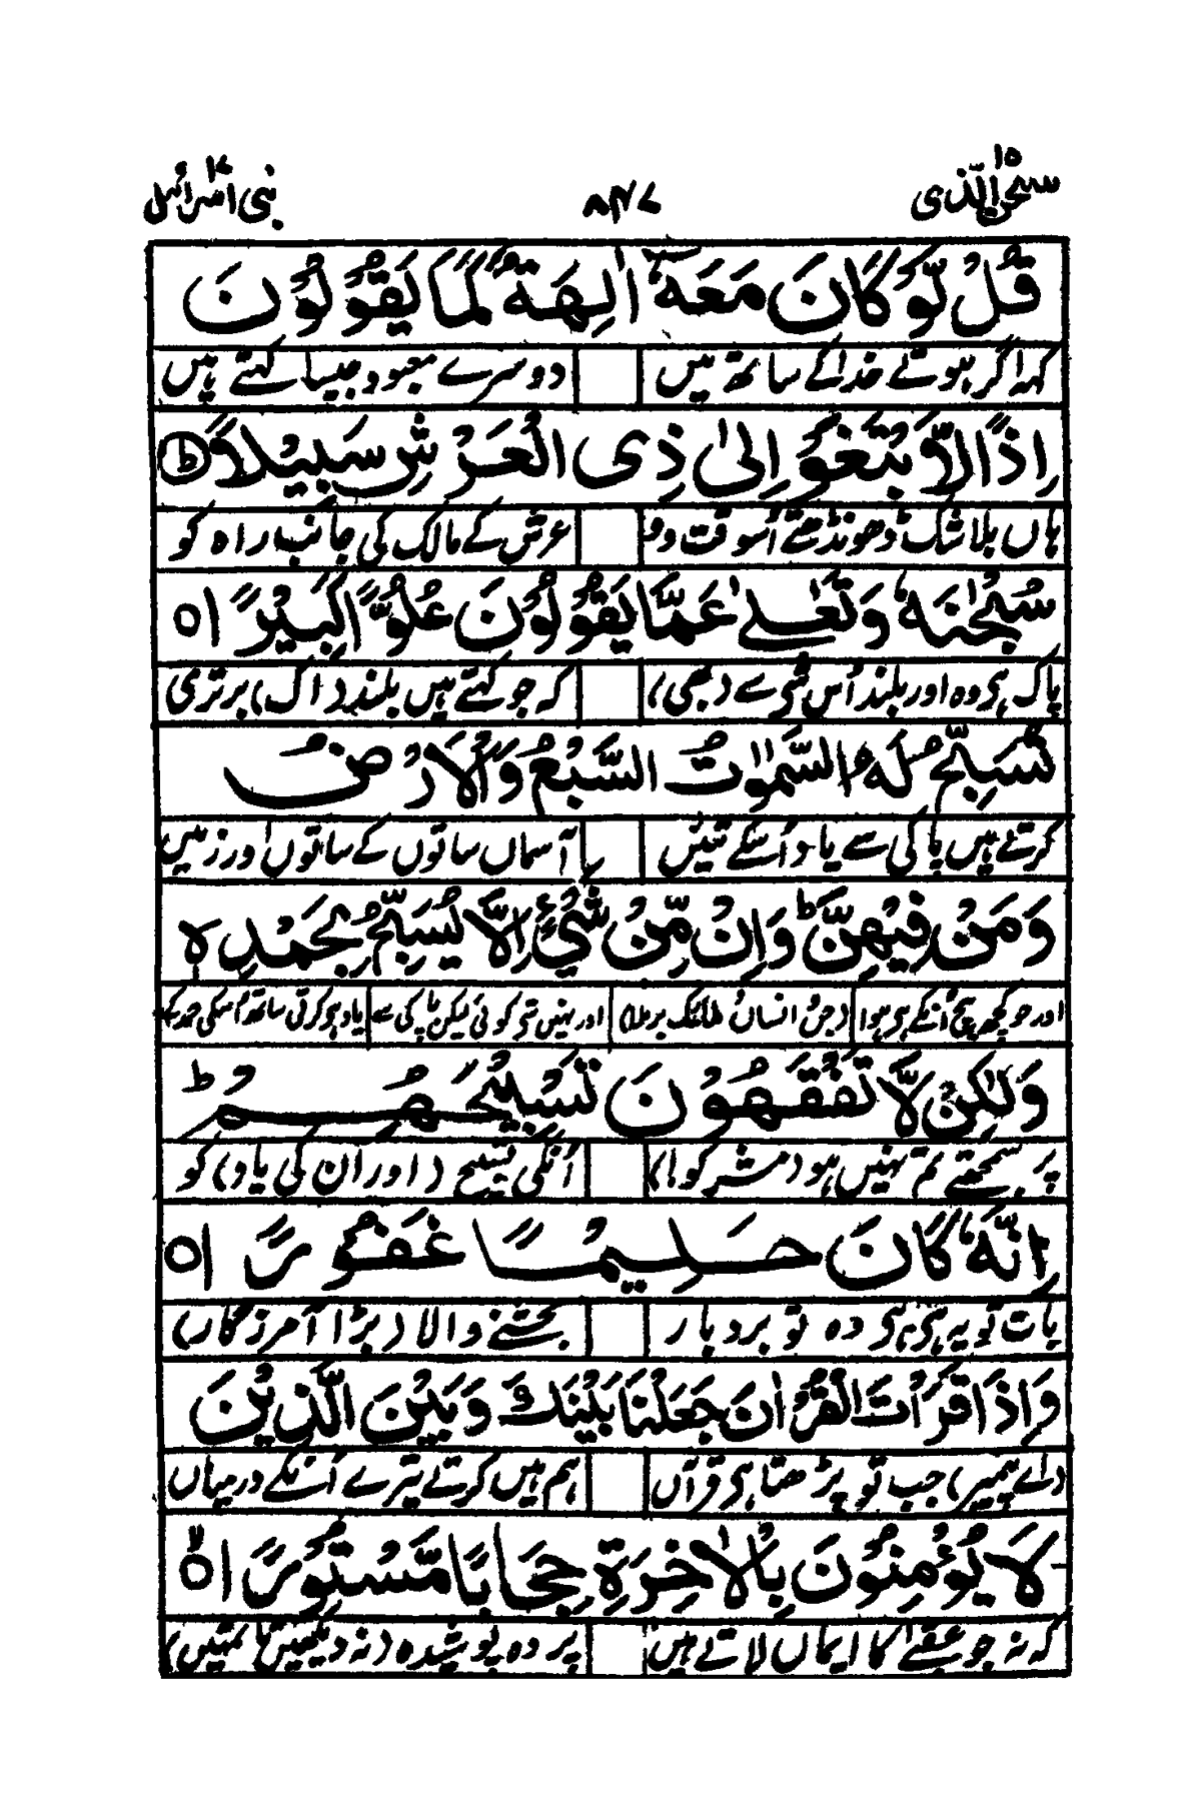 سبحٰن الّذی ١٥
٨٤٧
بنی اسرائیل ١٧
قُلْ لَّوْ كَانَ مَعَهٗۤ اٰلِهَةٌ كَمَا يَقُوْلُوْنَ
کہہ اگر ہوتے خدا کے ساتھ میں دوسرے معبود جیسا کہتے ہیں
اِذًا لَّابْتَغَوْا اِلٰى ذِى الْعَرْشِ سَبِيْلًا ط
ہاں بلا شک ڈھونڈھتے اُسوقت وو عرش کے مالک کی جانب راہ کو
سُبْحٰنَهٗ وَتَعٰلٰى عَمَّا يَقُوْلُوْنَ عُلُوًّا كَبِيْرًا ٥
پاک ہی وہ اور بلند اُس شی سے (بھی) کہ جو کہتے ہیں بلند (اک) برتری
تُسَبِّحُ لَهُ السَّمٰوٰتُ السَّبْعُ وَالْاَرْضُ
کرتے ہیں پاکی سے یاد اُسکے تئیں آسماں ساتوں کے ساتوں اور زمیں
وَمَنْ فِيْهِنَّ ط وَاِنْ مِّنْ شَىْءٍ اِلَّا يُسَبِّحُ بِحَمْدِهٖ
اور جو کچھ بیچ اُنکے ہی ہوا (جن انساں ملائک برملا) اور نہیں شی کوئی لیکن پاکی سے یاد ہی کرتی ساتھ اُسکی حمد کے
وَلٰكِنْ لَّا تَفْقَهُوْنَ تَسْبِيْحَهُمْ ط
پر سمجھتے تم نہیں ہو (مشرکو!) اُنکی تسبیح (اور ان کی یاد) کو
اِنَّهٗ كَانَ حَلِيْمًا غَفُوْرًا ٥
بات تو یہ ہی ہی وہ تو بردبار بخشنے والا (بڑا آمرزگار)
وَاِذَا قَرَاْتَ الْقُرْاٰنَ جَعَلْنَا بَيْنَكَ وَبَيْنَ الَّذِيْنَ
(اے پیمبر) جب تو پڑھتا ہی قرآں ہم ہیں کرتے تیرے اُنکے درمیاں
لَا يُؤْمِنُوْنَ بِالْاٰخِرَةِ حِجَابًا مَّسْتُوْرًا ٥ لا
کہ نہ جو عقبےٰ کا ایماں لاتے ہیں پردہ پوشیدہ (نہ دیکھیں تا تمہیں)